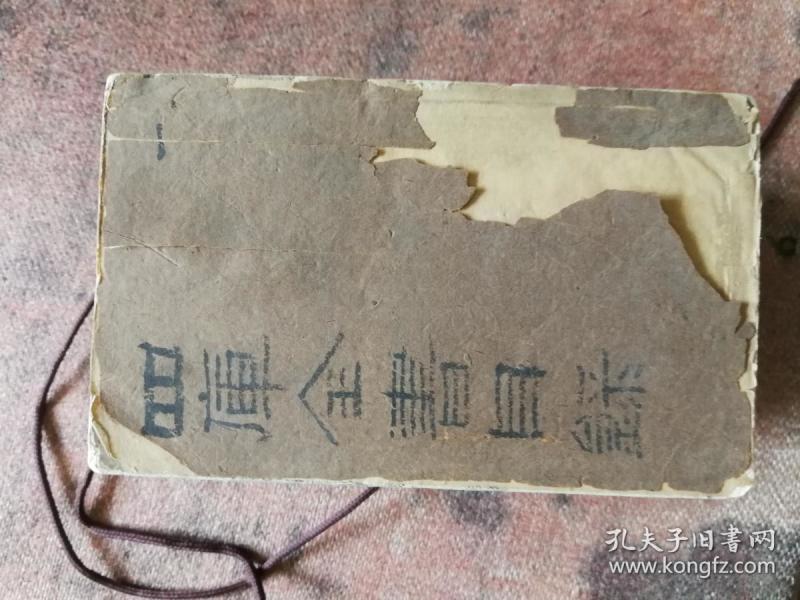 一
四庫全書目錄
孔夫子旧書网
www.kongfz.com